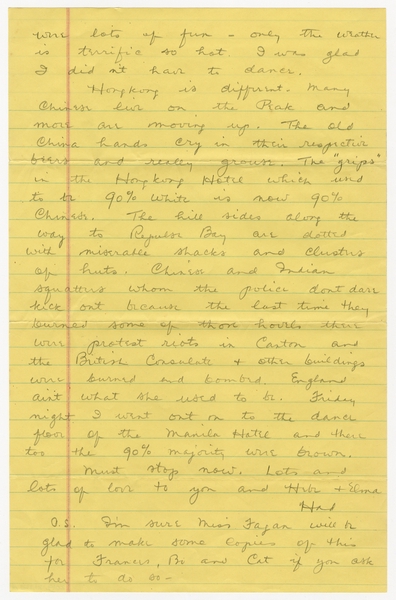 were lots of fun - only the weather
is terrific so hot. I was glad
I did n't have to dance.
Hongkong is different. Many
Chinese live on the Peak and
more are moving up. The old
China hands cry in their respective
beers and really grouse. The "grips"
in the Hongkong Hotel which used
to be 90% white is now 90%
Chinese. The hill sides along the
way to Repulse Bay are dotted
with miserable shacks and clusters
of huts. Chinese and Indian
squatters whom the police dont dare
kick out because the last time they
burned some of those hovels there
were protest riots in Canton and
the British Consulate + other buildings
were burned and bombed. England
ain't what she used to be. Friday
night I went out on to the dance
floor of the Manila Hotel and there
too the 90% majority were brown.
Must stop now. Lots and
lots of love to you and Hebe + Elma
Had
O.S. I'm sure Miss Fagan will be
glad to make some copies of this
for Frances, Bo and Cat if you ask
her to do so -